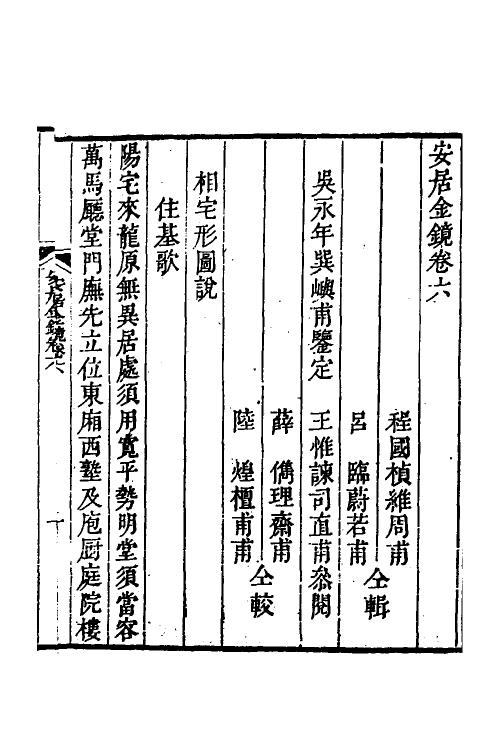 安居金鏡卷六
程國楨維周甫
呂　臨蔚若甫
仝輯
吳永年巽嶼甫鑒定　王惟諫司直甫叅閱
薛　儁理齋甫
陸　煌檀甫甫
仝較
相宅形圖說
住基歌
陽宅來龍原無異居處須用寬平勢明堂須當容
萬馬廳堂門廡先立位東廂西塾及庖厨庭院樓
安居金鏡卷六